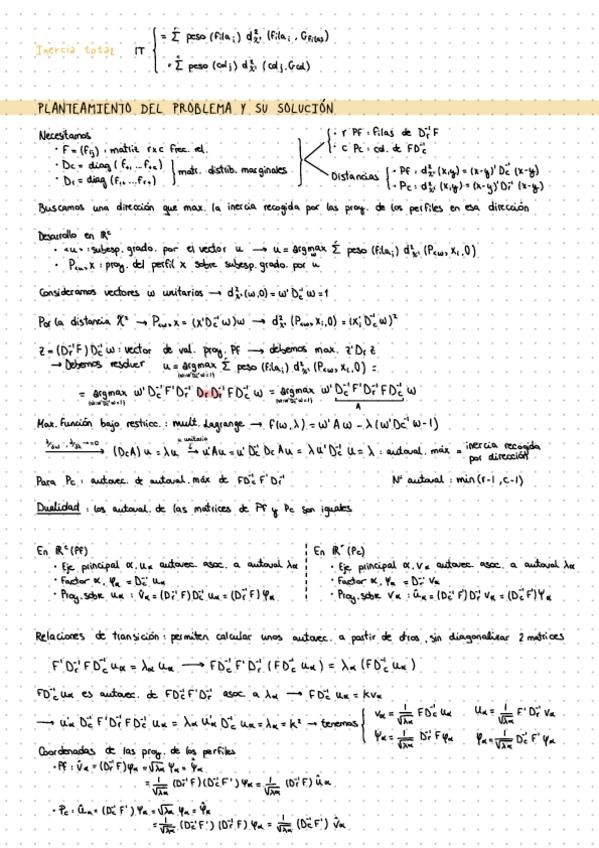 Inercia total IT { = Σ peso (fila_i) d²_χ² (fila_i, G_filas)
= Σ peso (col_j) d²_χ² (col_j, G_col)
PLANTEAMIENTO DEL PROBLEMA Y SU SOLUCIÓN
Necesitamos
· F = (f_ij) : matriz rxc frec. rel.
· D_c = diag (f_·1 ... f_·c)
· D_r = diag (f_1· ... f_r·) } matr. distrib. marginales
· r PF : filas de D_r⁻¹F
· c Pc : col. de FD_c⁻¹
Distancias { · PF : d²_χ² (x,y) = (x-y)' D_c⁻¹ (x-y)
· Pc : d²_χ² (x,y) = (x-y)' D_r⁻¹ (x-y)
Buscamos una dirección que max. la inercia recogida por las proy. de los perfiles en esa dirección
Desarrollo en ℝᶜ
· <u> : subesp. grado. por el vector u → u = argmax Σ peso (fila_i) d²_χ² (P_<w> x_i, 0)
· P_<u> x : proy. del perfil x sobre subesp. grado. por u
Consideramos vectores w unitarios → d²_χ² (w,0) = w' D_c⁻¹ w = 1
Por la distancia χ² → P_<w> x = (x' D_c⁻¹ w) w → d²_χ² (P_<w> x_i, 0) = (x_i' D_c⁻¹ w)²
z = (D_r⁻¹F) D_c⁻¹ w : vector de val. proy. PF → debemos max. z' D_r z
→ Debemos resolver u = argmax Σ peso (fila_i) d²_χ² (P_<w> x_i, 0) =
= argmax w' D_c⁻¹ F' D_r⁻¹ D_r D_r⁻¹ F D_c⁻¹ w = argmax w' D_c⁻¹ F' D_r⁻¹ F D_c⁻¹ w
A
Max. Función bajo restricc. : mult. Lagrange → f(w,λ) = w' A w - λ (w' D_c⁻¹ w - 1)
→ (D_c A) u = λu → u' A u = u' D_c⁻¹ D_c A u = λ u' D_c⁻¹ u = λ : autoval. máx = inercia recogida por dirección
Para Pc : autovec. de autoval. máx de F D_c⁻¹ F' D_r⁻¹ Nº autoval : min (r-1, c-1)
Dualidad : los autoval. de las matrices de PF y Pc son iguales
En ℝᶜ (PF)
· Eje principal α, u_α autovec. asoc. a autoval λ_α
· Factor α, φ_α = D_c⁻¹ u_α
· Proy. sobre u_α : v̂_α = (D_r⁻¹ F) D_c⁻¹ u_α = (D_r⁻¹ F) φ_α
En ℝʳ (Pc)
· Eje principal α, v_α autovec. asoc. a autoval λ_α
· Factor α, ψ_α = D_r⁻¹ v_α
· Proy. sobre v_α : û_α = (D_c⁻¹ F') D_r⁻¹ v_α = (D_c⁻¹ F') ψ_α
Relaciones de transición : permiten calcular unos autovec. a partir de otros, sin diagonalizar 2 matrices
F' D_r⁻¹ F D_c⁻¹ u_α = λ_α u_α → F D_c⁻¹ F' D_r⁻¹ (F D_c⁻¹ u_α) = λ_α (F D_c⁻¹ u_α)
F D_c⁻¹ u_α es autovec. de F D_c⁻¹ F' D_r⁻¹ asoc. a λ_α → F D_c⁻¹ u_α = k v_α
→ u_α' D_c⁻¹ F' D_r⁻¹ F D_c⁻¹ u_α = λ_α u_α' D_c⁻¹ u_α = λ_α = k² → tenemos { v_α = 1/√λ_α F D_c⁻¹ u_α u_α = 1/√λ_α F' D_r⁻¹ v_α
ψ_α = 1/√λ_α D_r⁻¹ F φ_α φ_α = 1/√λ_α D_c⁻¹ F' ψ_α
Coordenadas de las proy. de los perfiles
· PF : v̂_α = (D_r⁻¹ F) φ_α = √λ_α ψ_α = ψ̂_α
= 1/√λ_α (D_r⁻¹ F) (D_c⁻¹ F') ψ_α = 1/√λ_α (D_r⁻¹ F) û_α
· Pc : û_α = (D_c⁻¹ F') ψ_α = √λ_α φ_α = φ̂_α
= 1/√λ_α (D_c⁻¹ F') (D_r⁻¹ F) φ_α = 1/√λ_α (D_c⁻¹ F') v̂_α